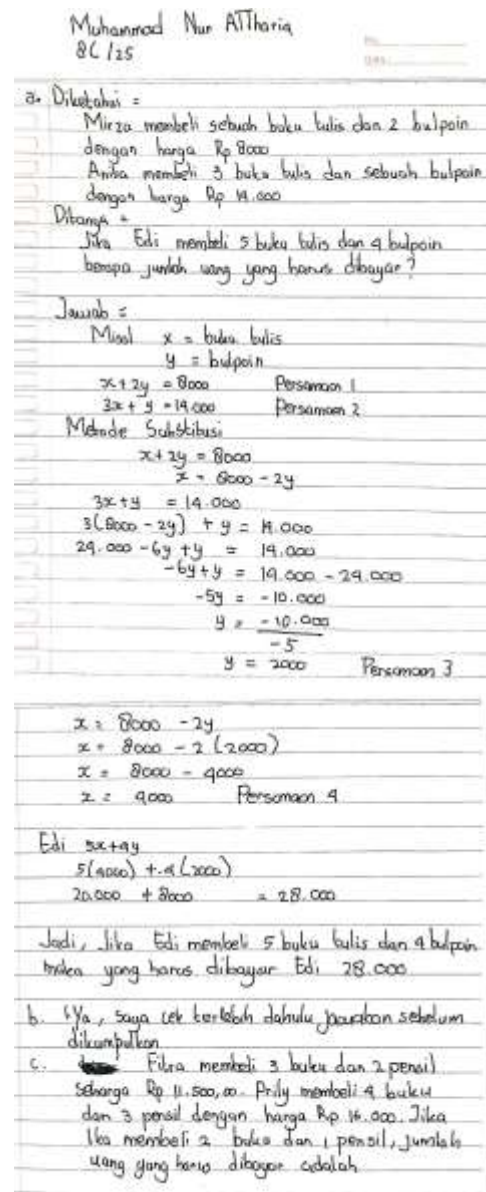 Muhammad Nur ATTharia
8C /25
a. Diketahui =
Mirza membeli sebuah buku tulis dan 2 bulpoin
dengan harga Rp 8000
Anita membeli 3 buku tulis dan sebuah bulpoin
dengan harga Rp 14.000
Ditanya =
Jika Edi membeli 5 buku tulis dan 4 bulpoin
berapa jumlah uang yang harus dibayar?
Jawab =
Misal x = buku tulis
y = bulpoin
x + 2y = 8000 Persamaan 1
3x + y = 14.000 Persamaan 2
Metode Substitusi
x + 2y = 8000
x = 8000 - 2y
3x + y = 14.000
3(8000 - 2y) + y = 14.000
24.000 - 6y + y = 14.000
-6y + y = 14.000 - 24.000
-5y = -10.000
y = -10.000
-5
y = 2000 Persamaan 3
x = 8000 - 2y
x = 8000 - 2 (2000)
x = 8000 - 4000
x = 4000 Persamaan 4
Edi 5x+4y
5(4000) + 4(2000)
20.000 + 8000 = 28.000
Jadi, Jika Edi membeli 5 buku tulis dan 4 bulpoin
maka yang harus dibayar Edi 28.000
b. Iya, saya cek terlebih dahulu jawaban sebelum
dikumpulkan
c. Fitra membeli 3 buku dan 2 pensil
seharga Rp 11.500,00. Prily membeli 4 buku
dan 3 pensil dengan harga Rp 16.000. Jika
Ika membeli 2 buku dan 1 pensil, jumlah
uang yang harus dibayar adalah